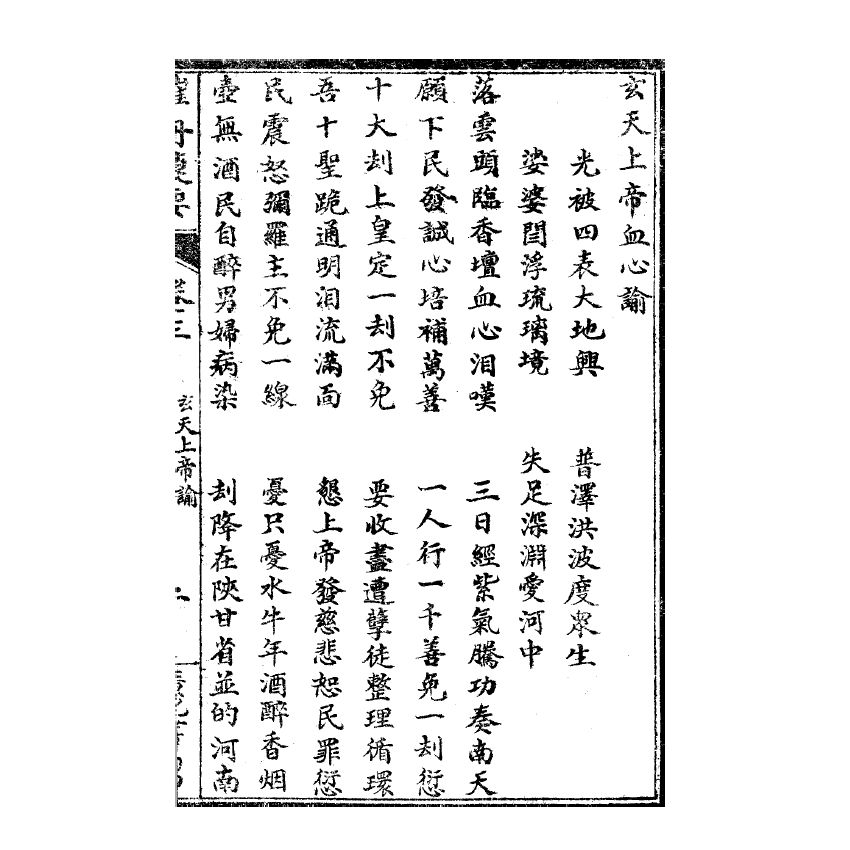 玄天上帝血心諭
光被四表大地興　普澤洪波度眾生
娑婆閻浮琉璃境　失足深淵愛河中
落雲頭臨香壇血心泪嘆　三日經紫氣騰功奏南天
願下民發誠心培補萬善　一人行一千善免一刦愆
十大刦上皇定一刦不免　要收盡遭孽徒整理循環
吾十聖跪通明泪流滿面　懇上帝發慈悲恕民罪愆
民震怒彌羅主不免一線　憂只憂水牛年酒醉香烟
壺無酒民自醉男婦病染　刦降在陝甘省並的河南
玄天上帝諭